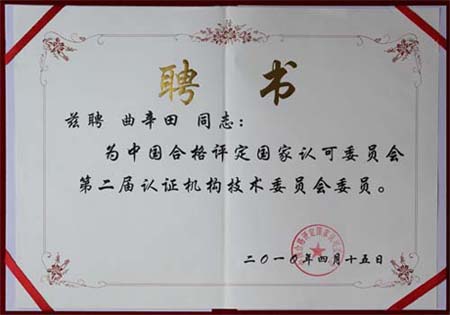 聘 书
兹聘 曲辛田 同志：
为中国合格评定国家认可委员会
第二届认证机构技术委员会委员。
二〇一〇年四月十五日